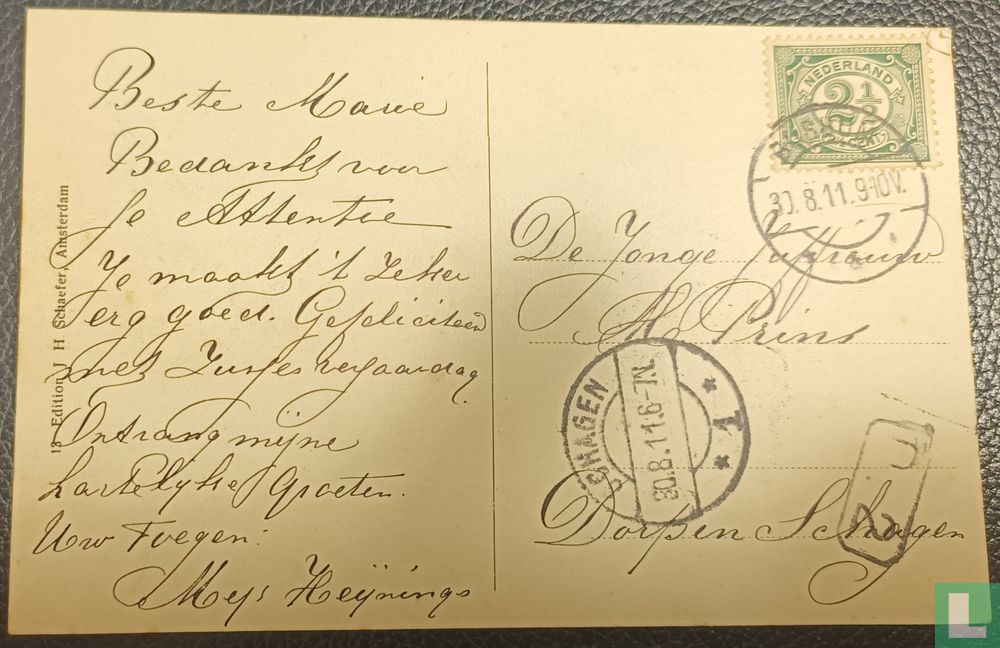 Beste Marie
Bedankt voor
je Attentie
Je maakt 't zeker
erg goed. Gefeliciteerd
met Zusjes verjaardag
Ontvang mijne
hartelyke Groeten.
Uw
Heijnings
13 Edition J H Schaefer, Amsterdam
NEDERLAND
2½
CENT
30.8.11.9-10V.
De Jonge Juffrouw
M Prins
SCHAGEN
30.8.11.6-7N.
* 1 *
Dorpen Schagen
L